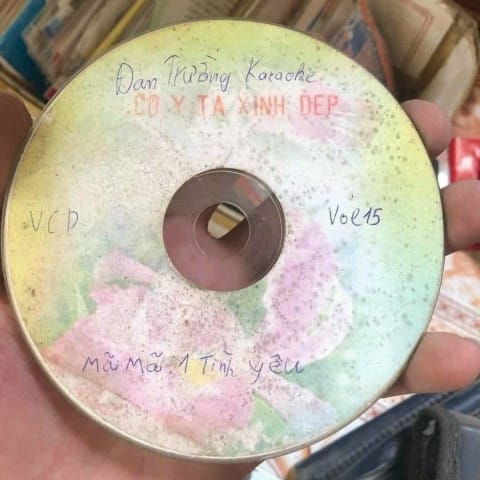 Đan Trường Karaoke
CO Y TA XINH DEP
VCD
Vol 15
Mãi Mãi 1 Tình yêu